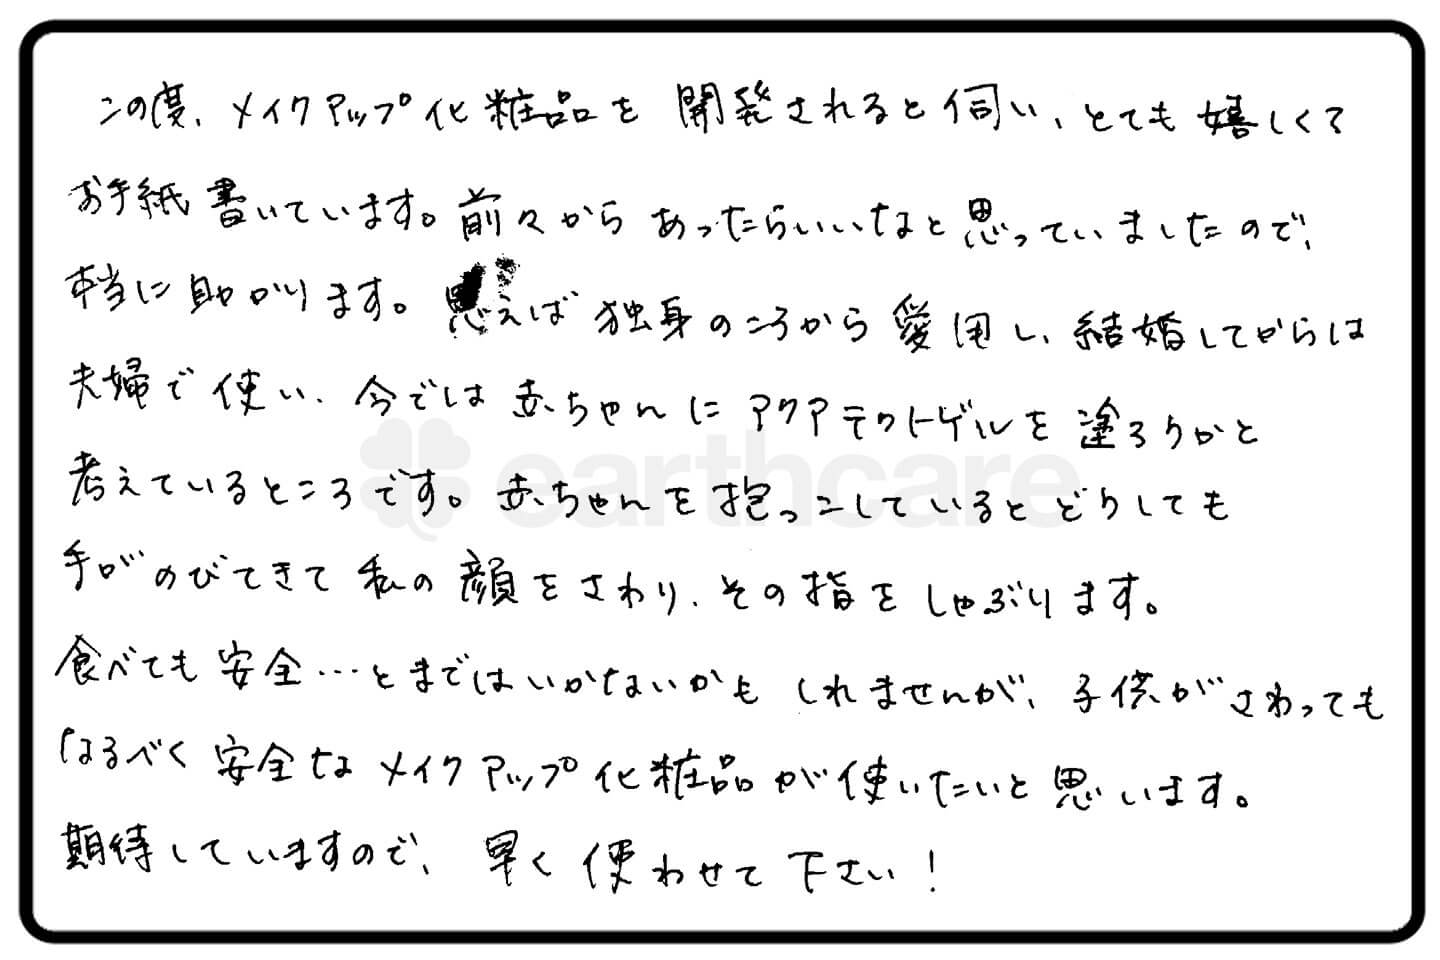 この度、メイクアップ化粧品を開発されると伺い、とても嬉しくて
お手紙書いています。前々からあったらいいなと思っていましたので、
本当に助かります。思えば独身のころから愛用し、結婚してからは
夫婦で使い、今では赤ちゃんにアクアテクトゲルを塗ろうかと
考えているところです。赤ちゃんを抱っこしているとどうしても
手がのびてきて私の顔をさわり、その指をしゃぶります。
食べても安全…とまではいかないかもしれませんが、子供がさわっても
なるべく安全なメイクアップ化粧品が使いたいと思います。
期待していますので、早く使わせて下さい!
earthcare